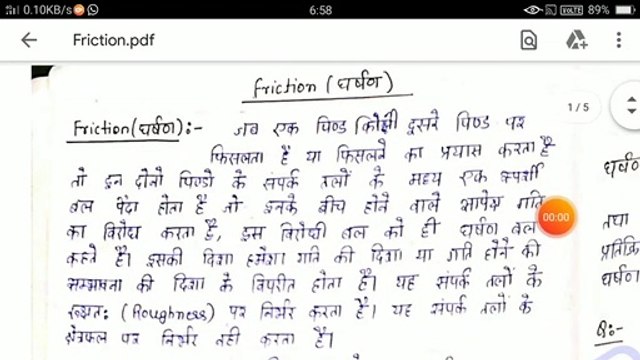 0.10KB/s
6:58
VOLTE 89%
Friction.pdf
Friction (घर्षण)
1 / 5
Friction (घर्षण) :- जब एक पिण्ड किसी दूसरे पिण्ड पर
फिसलता है या फिसलने का प्रयास करता है
तो इन दोनो पिण्डो के संपर्क तलों के मध्य एक स्पर्शी
बल पैदा होता है जो इनके बीच होने वाले सापेक्ष गति
का विरोध करता है, इस विरोधी बल को ही घर्षण बल
कहते है। इसकी दिशा हमेशा गति की दिशा या गति होने की
सम्भावना की दिशा के विपरीत होता है। यह संपर्क तलों के
(Roughness) पर निर्भर करता है। यह संपर्क तलों के
क्षेत्रफल पर निर्भर नही करता है।
00:00
घर्षण
तथा
प्रतिक्रि
घर्षण
Q:-